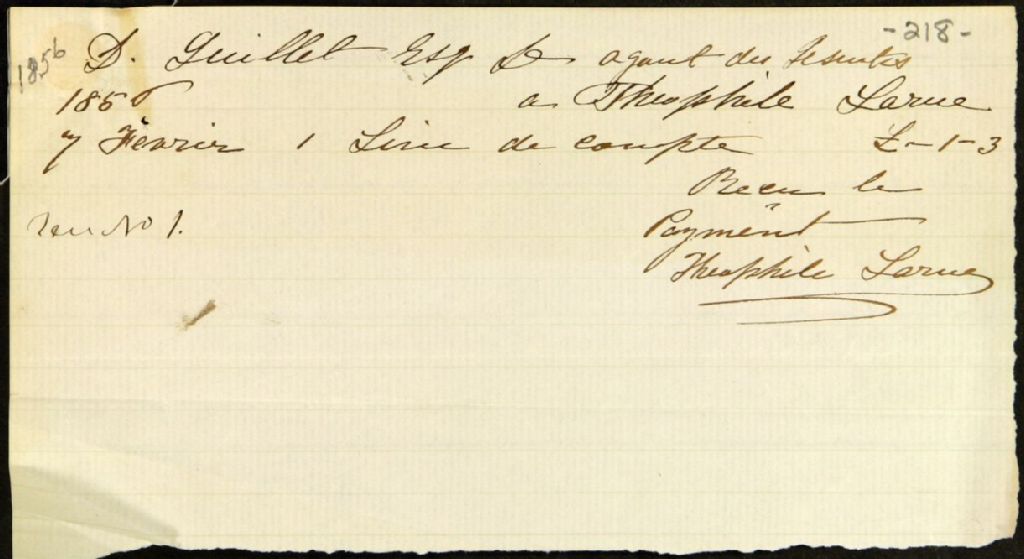 -218-
1856
D. Guillet Esq Dr agent des Jesuites
1856 a Theophile Larue
7 Fevrier 1 Livre de compte £-1-3
Recu le
Payment
Theophile Larue
No 1.